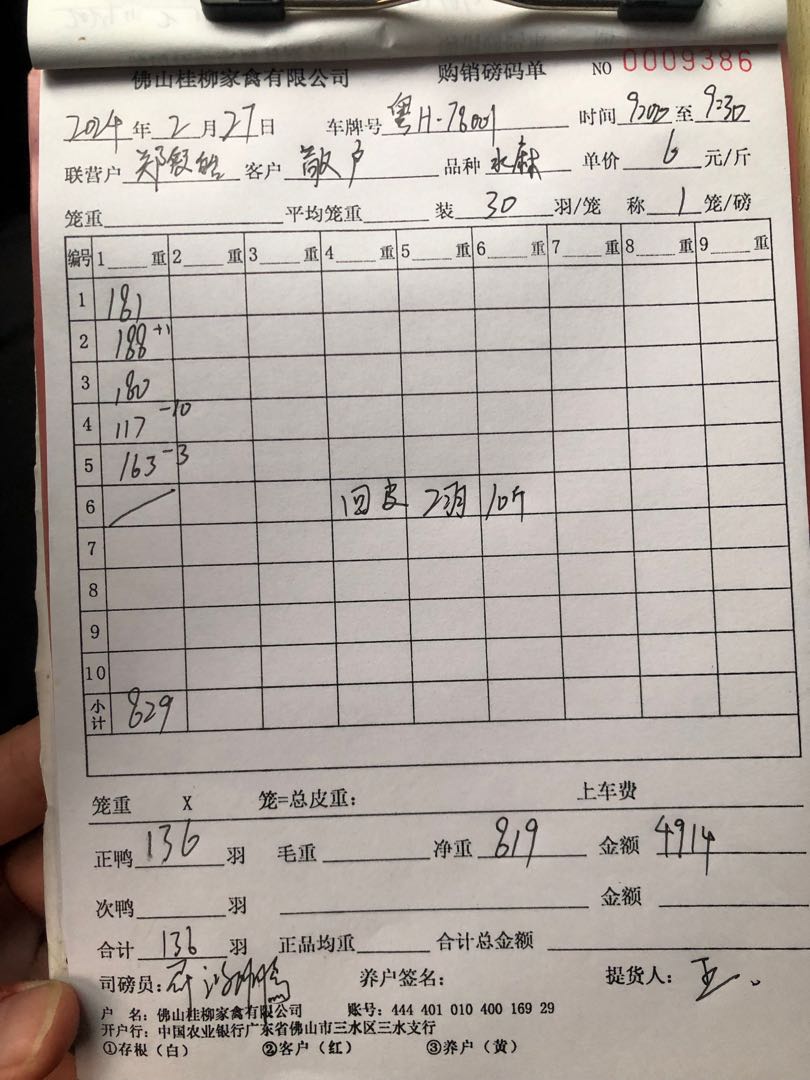 佛山桂柳家禽有限公司 购销磅码单 NO 0009386
2024年2月27日 车牌号 粤H-78001 时间 9:00 至 9:30
联营户 郑 客户 散户 品种 水麻 单价 6 元/斤
笼重 平均笼重 装 30 羽/笼 称 1 笼/磅
编号 1 重 2 重 3 重 4 重 5 重 6 重 7 重 8 重 9 重
1 181
2 188 +1
3 180
4 117 -10
5 163 -3
6 / 回皮 2羽 10斤
7
8
9
10
小计 829
笼重 X 笼=总皮重: 上车费
正鸭 136 羽 毛重 净重 819 金额 4914
次鸭 羽 金额
合计 136 羽 正品均重 合计总金额
司磅员: 养户签名: 提货人: 王
户 名: 佛山桂柳家禽有限公司 账号: 444 401 010 400 169 29
开户行: 中国农业银行广东省佛山市三水区三水支行
①存根(白) ②客户(红) ③养户(黄)